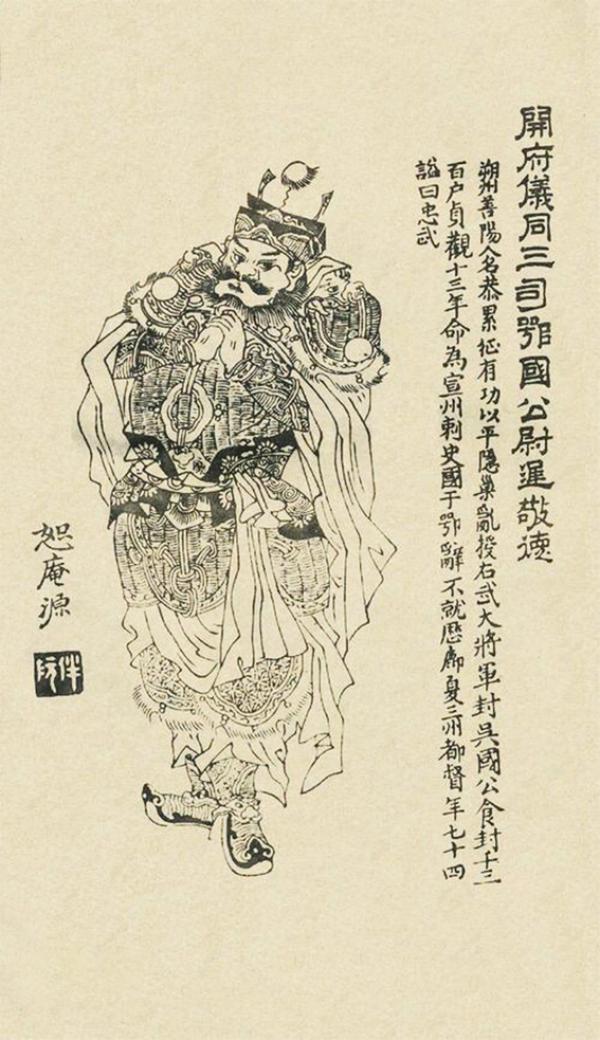 開府儀同三司鄂國公尉遲敬德
朔州善陽人名恭累征有功以平隱巢亂授右武大將軍封吳國公食封千三
百户貞觀十三年命為宣州刺史國于鄂辭不就歷鄜夏三州都督年七十四
諡曰忠武
恕庵源
伴阮